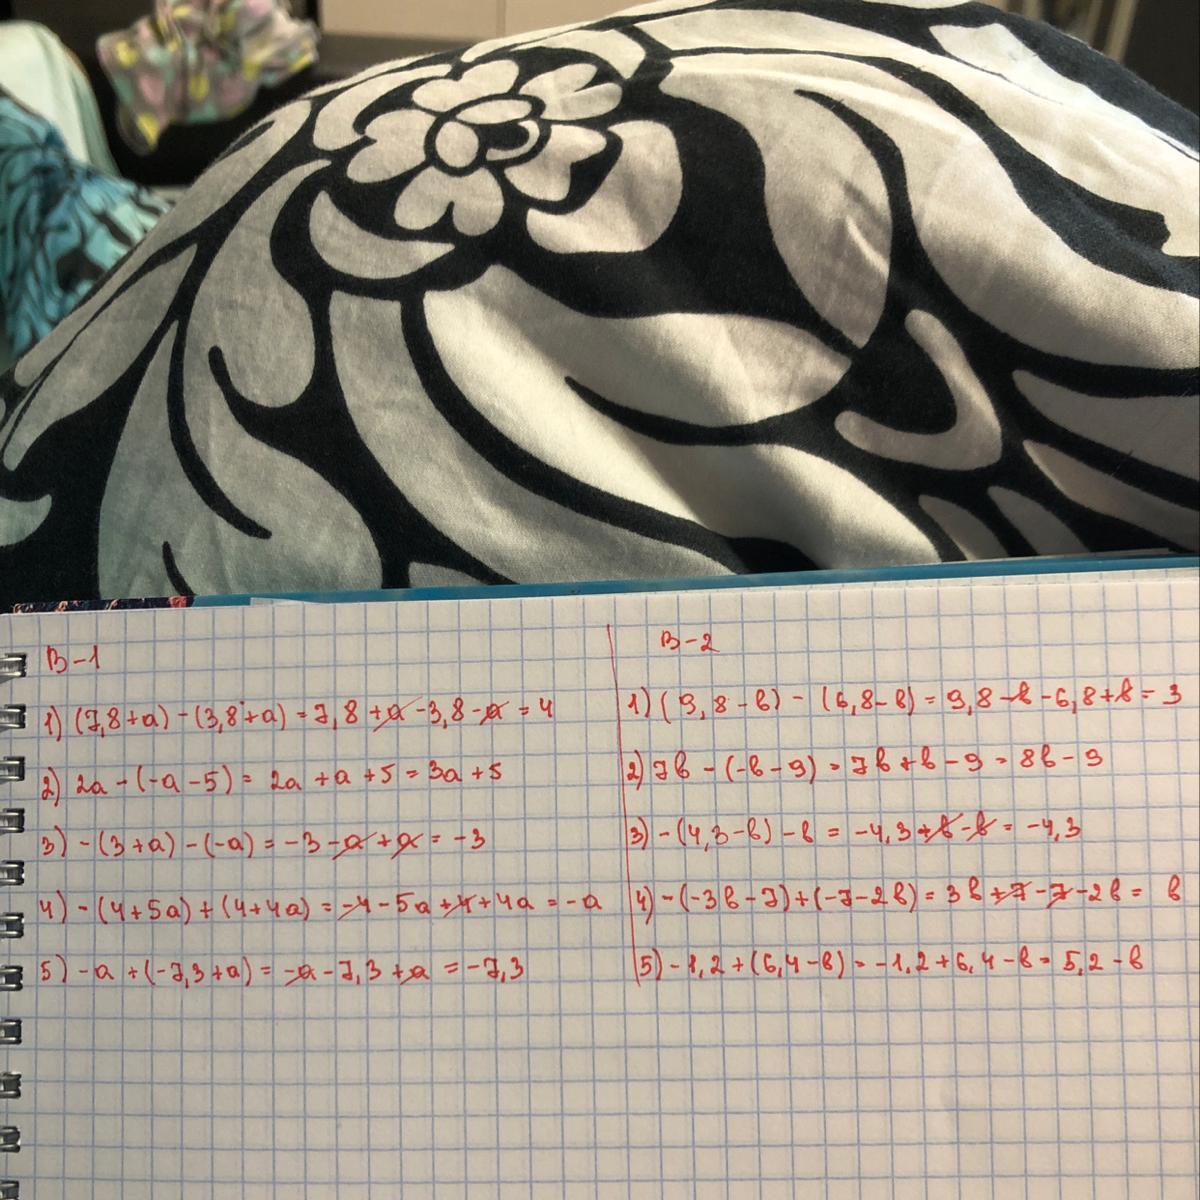 В-1
1) (7,8+a) - (3,8+a) = 7,8 + a - 3,8 - a = 4
2) 2a - (-a - 5) = 2a + a + 5 = 3a + 5
3) - (3 + a) - (-a) = -3 - a + a = -3
4) - (4 + 5a) + (4 + 4a) = -4 - 5a + 4 + 4a = -a
5) -a + (-7,3 + a) = -a - 7,3 + a = -7,3
В-2
1) (9,8 - в) - (6,8 - в) = 9,8 - в - 6,8 + в = 3
2) 7в - (-в - 9) = 7в + в - 9 = 8в - 9
3) - (4,3 - в) - в = -4,3 + в - в = -4,3
4) - (-3в - 7) + (-7 - 2в) = 3в + 7 - 7 - 2в = в
5) -1,2 + (6,4 - в) = -1,2 + 6,4 - в = 5,2 - в